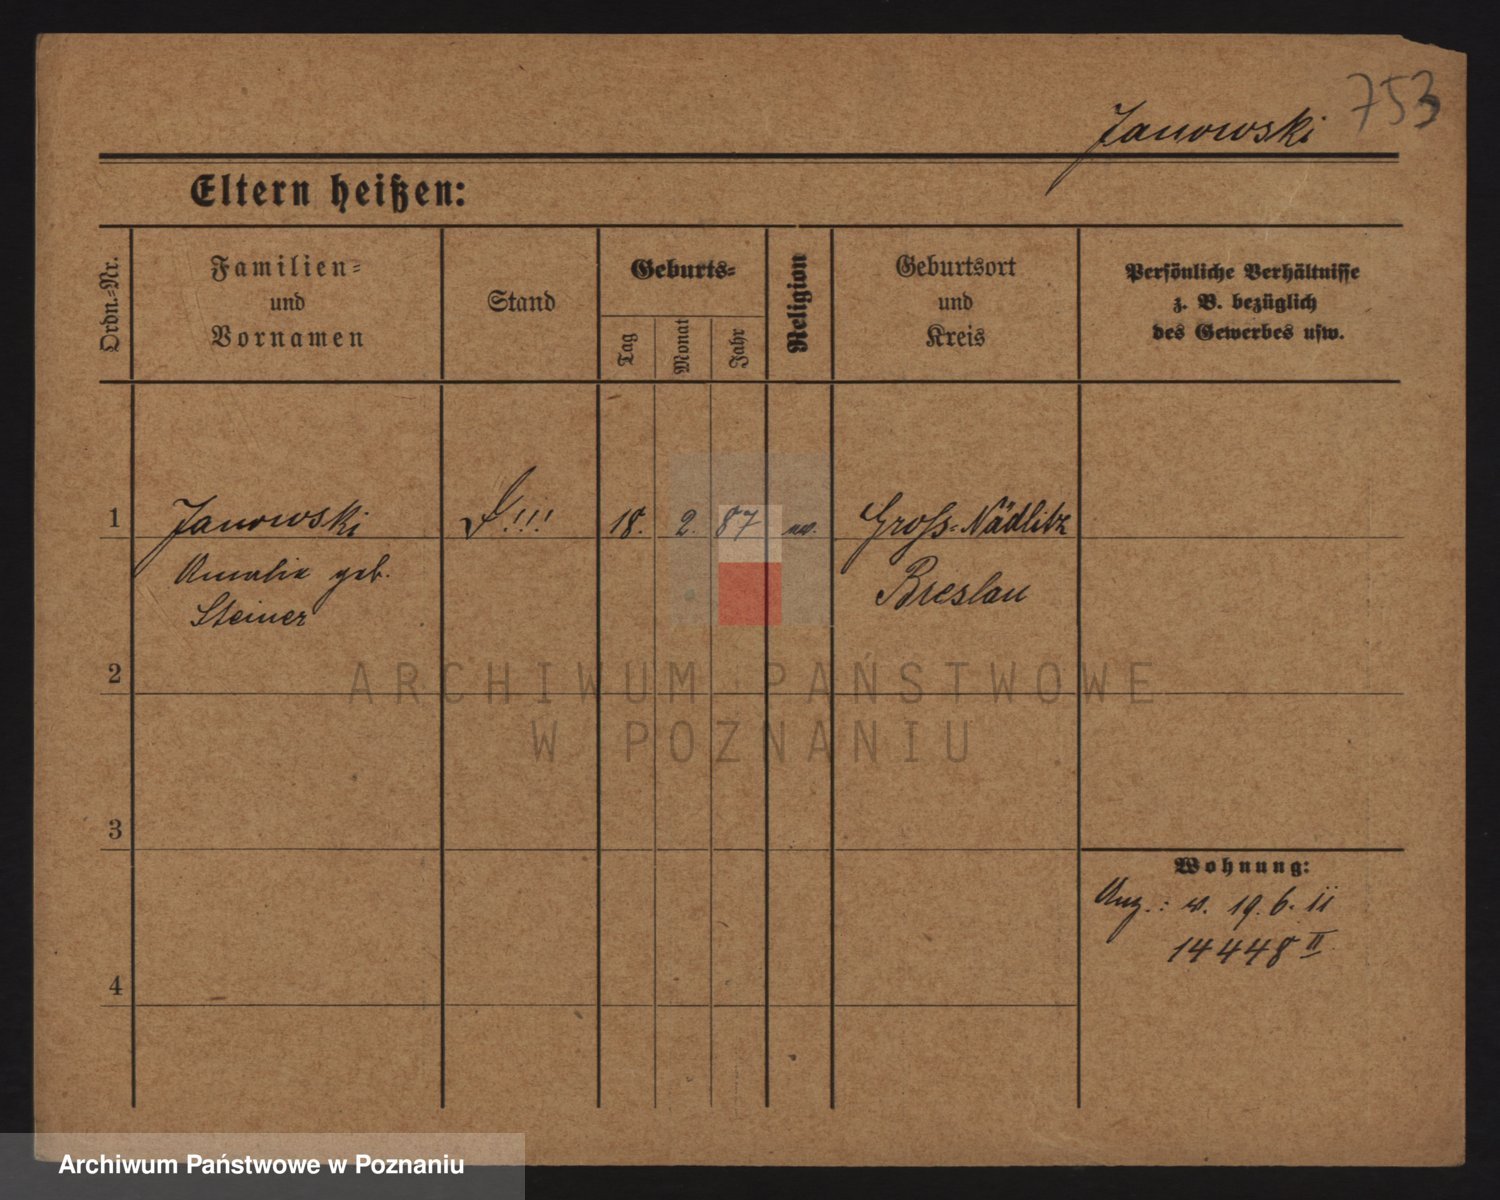 753
Janowski
Eltern heißen:
Ordn.-Nr.
Familien-
und
Vornamen
Stand
Geburts-
Tag
Monat
Jahr
Religion
Geburtsort
und
Kreis
Persönliche Verhältnisse
z. B. bezüglich
des Gewerbes usw.
1
Janowski
!!!
18.
2.
87
Gross-Nädlitz
Amalie geb.
Breslau
Steiner
2
ARCHIWUM PAŃSTWOWE
W POZNANIU
3
Wohnung:
Anz.: v. 19. 6. 11
14448 II
4
Archiwum Państwowe w Poznaniu